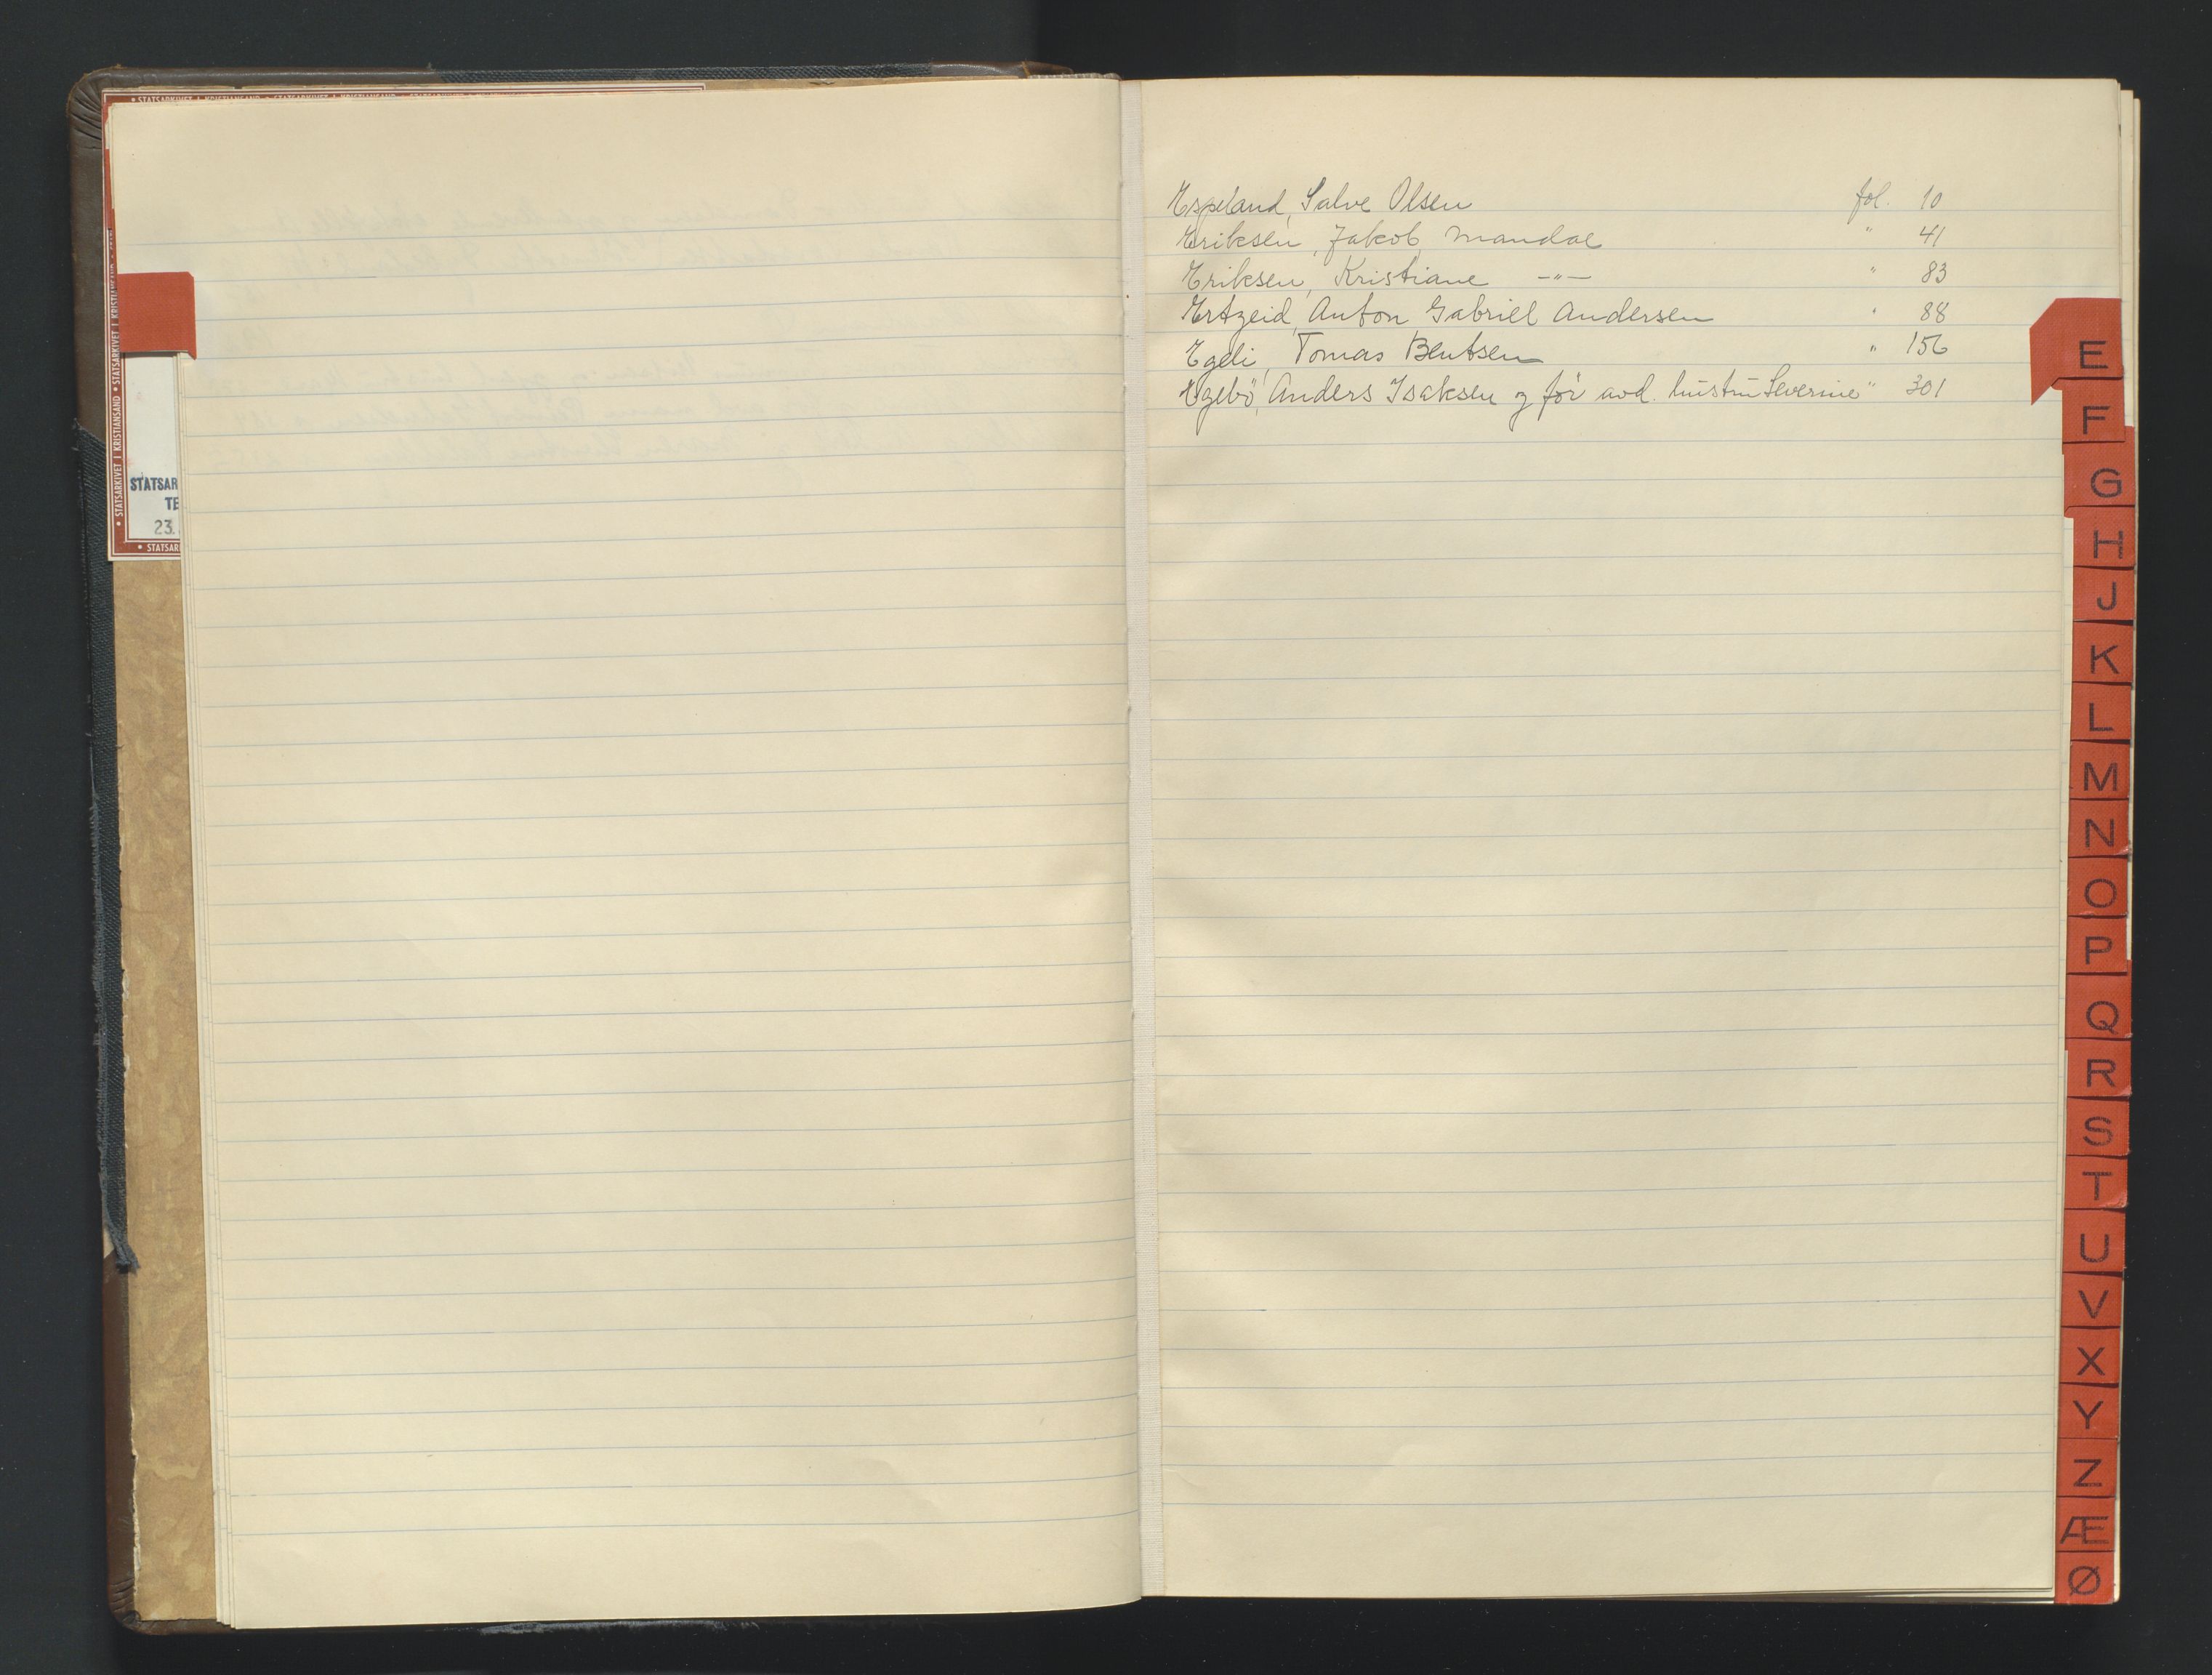 • STATSARKIVET I KRISTIANSAND • STATSARKIVET I KRISTIANSAND •
STATSARKIVET I KRISTIANSAND • STATSARKIVET I KRISTIANSAND
STATSAR
TE
23.
• STATSAR
Espeland, Salve Olsen fol. 10
Eriksen, Jakob, Mandal " 41
Eriksen, Kristiane —"— " 83
Ertzeid, Anton Gabriel Andersen " 88
Egeli, Tomas Bentsen " 156
Egebö, Anders Isaksen og før avd. hustru Severine " 301
E
F
G
H
J
K
L
M
N
O
P
Q
R
S
T
U
V
X
Y
Z
Æ
Ø